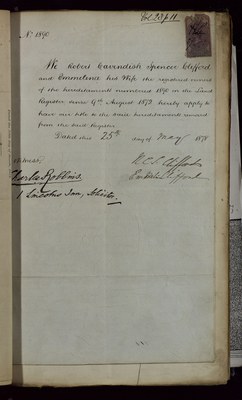 No 1890
We Robert Cavendish Spencer Clifford
and Emmeline his Wife the registered owners
of the hereditaments numbered 1890 in the Land
Register since 9th August 1873 hereby apply to
have our title to the said hereditaments removed
from the said Register.
Dated this 25th day of May 187
Witness
R.C.S. Clifford
Emmeline Clifford
Charles Robbins,
1 Lincolns Inn, Solicitor,